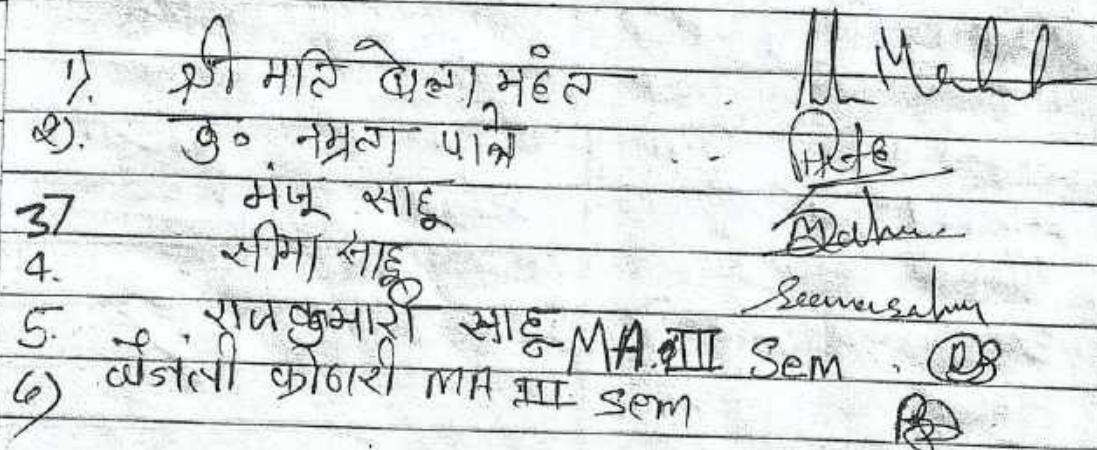 1). श्री मति बेला महंत
2). कु० नम्रता पात्रे
37 मंजू साहू
4. सीमा साहू Seemasahu
5. राजकुमारी साहू MA.III Sem
6) वैजंती कोठारी MA III sem